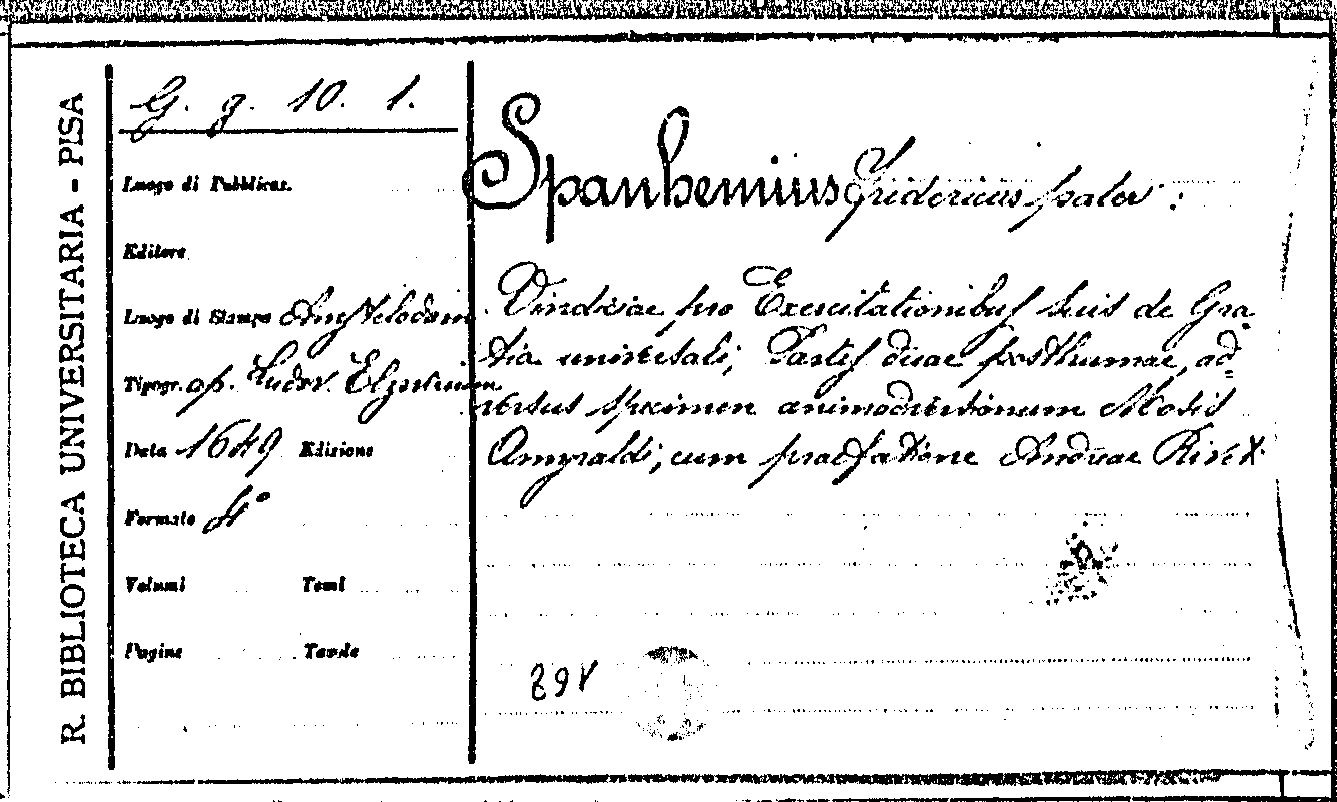 R. BIBLIOTECA UNIVERSITARIA - PISA
G. g. 10. 1.
Luogo di Pubblicaz.
Editore
Luogo di Stampa Amstelodami
Tipogr. ap. Ludov. Elzevirium
Data 1649 Edizione
Formato 4°
Volumi Tomi
Pagine Tavole
Spanhemius Fridericus pater:
Vindiciae pro Exercitationibus suis de Gra-
tia universali, Partes duae posthumae, ad=
versus specimen animadversionum Mosis
Amyraldi, cum praefatione Andreae Rivet